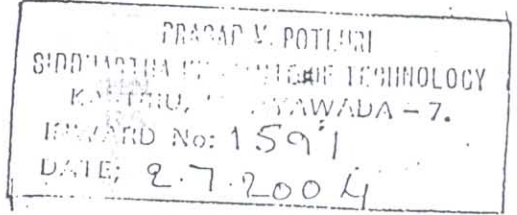 PRASAD V. POTLURI
SIDDHARTHA INSTITUTE OF TECHNOLOGY
KANURU, VIJAYAWADA – 7.
INWARD No: 1591
DATE; 2.7.2004